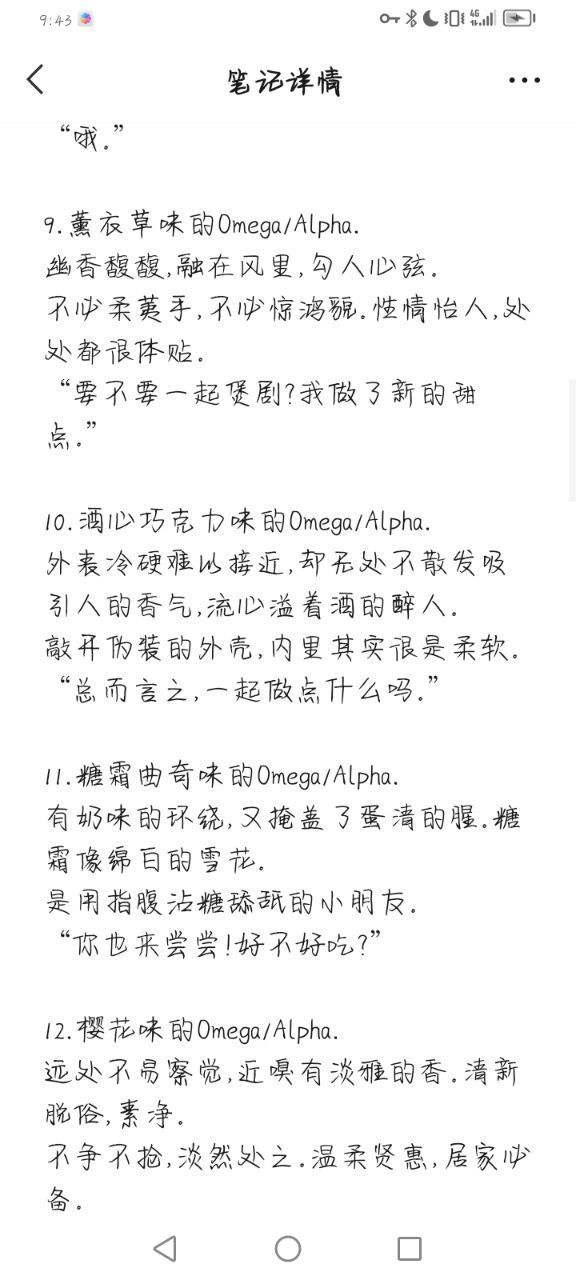 9:43
4G
笔记详情
“哦.”
9.薰衣草味的Omega/Alpha.
幽香馥馥,融在风里,勾人心弦.
不必柔荑手,不必惊鸿貌.性情怡人,处
处都很体贴.
“要不要一起煲剧?我做了新的甜
点.”
10.酒心巧克力味的Omega/Alpha.
外表冷硬难以接近,却无处不散发吸
引人的香气,流心溢着酒的醉人.
敲开伪装的外壳,内里其实很是柔软.
“总而言之,一起做点什么吗.”
11.糖霜曲奇味的Omega/Alpha.
有奶味的环绕,又掩盖了蛋清的腥.糖
霜像绵白的雪花.
是用指腹沾糖舔舐的小朋友.
“你也来尝尝!好不好吃?”
12.樱花味的Omega/Alpha.
远处不易察觉,近嗅有淡雅的香.清新
脱俗,素净.
不争不抢,淡然处之.温柔贤惠,居家必
备.